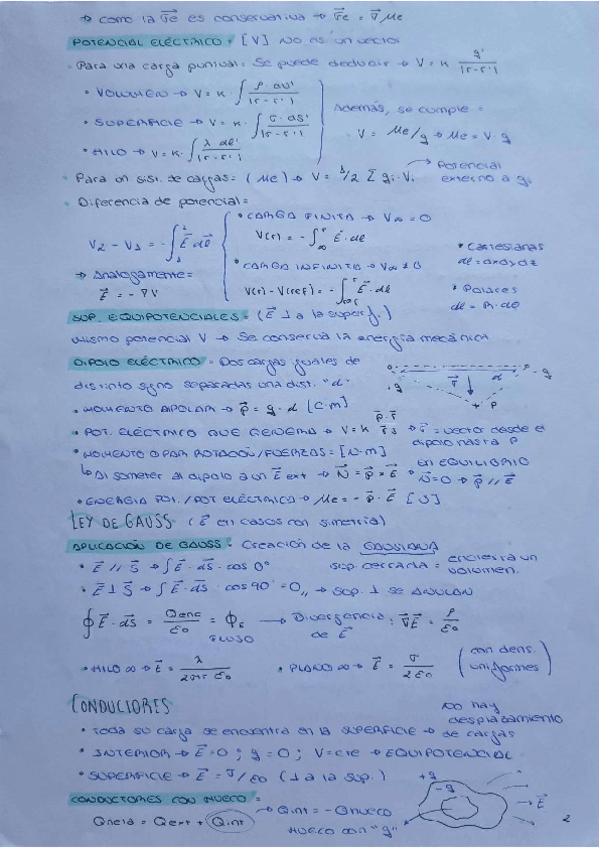 → como la Fe es conservativa → Fe = ∇ Ue
POTENCIAL ELÉCTRICO: [V] NO es un vector
· Para una carga puntual: Se puede deducir → V = K q'/|r-r'|
• VOLUMEN → V = K · ∫ ρ · dv'/|r-r'|
• SUPERFICIE → V = K · ∫ σ · ds'/|r-r'|
• HILO → V = K · ∫ λ dl'/|r-r'|
Además, se cumple:
V = Ue/q → Ue = V · q
• Para un sist. de cargas: (Ue) → V = 1/2 Σ qi · Vi → Potencial externo a qi
• Diferencia de potencial:
V2 - V1 = -∫ E · dl
→ Analogamente:
E = - ∇V
• CARGA FINITA → V∞ = 0
V(r) = -∫ E · dl
• CARGA INFINITA → V∞ ≠ 0
V(r) - V(ref) = -∫ E · dl
* Cartesianas
dl = dxdydz
* Polares
dl = R · dθ
SUP. EQUIPOTENCIALES = (E ⊥ a la superf.)
mismo potencial V → Se conserva la energía mecánica
DIPOLO ELÉCTRICO = Dos cargas iguales de
distinto signo separadas una dist. "d"
-q r d q
P
• MOMENTO DIPOLAR → p = q · d [C·m]
• POT. ELÉCTRICO QUE GENERA → V = K p · r / r3 → r = vector desde el
dipolo hasta P
• MOMENTO O PAR ROTACIÓN/FUERZAS = [N·m]
↳ Al someter al dipolo a un E ext → N = p × E
* EN EQUILIBRIO
N = 0 → p // E
• ENERGÍA POT. / POT ELÉCTRICO → Ue = - p · E [J]
LEY DE GAUSS (E en casos con simetría)
APLICACIÓN DE GAUSS - Creación de la GAUSSIANA
sup. cerrada = encierra un
volumen.
• E // S → ∫ E · ds · cos 0°
• E ⊥ S → ∫ E · ds · cos 90° = 0 // → sup. ⊥ se ANULAN
∮ E · ds = Qenc/ε0 = ΦE → Divergencia: ∇E = ρ/ε0
FLUJO de E
• HILO ∞ → E = λ/2πr ε0 • PLANO ∞ → E = σ/2ε0 (con dens. uniformes)
CONDUCTORES
• Toda su carga se encuentra en la SUPERFICIE → no hay
desplazamiento
de cargas
• INTERIOR → E = 0 ; q = 0 ; V = cte → EQUIPOTENCIAL
• SUPERFICIE → E = σ/ε0 (⊥ a la sup.)
CONDUCTORES CON HUECO =
Qneta = Qext + Qint → Qint = - Qhueco
HUECO CON "q"
+q
-q
→ E
2